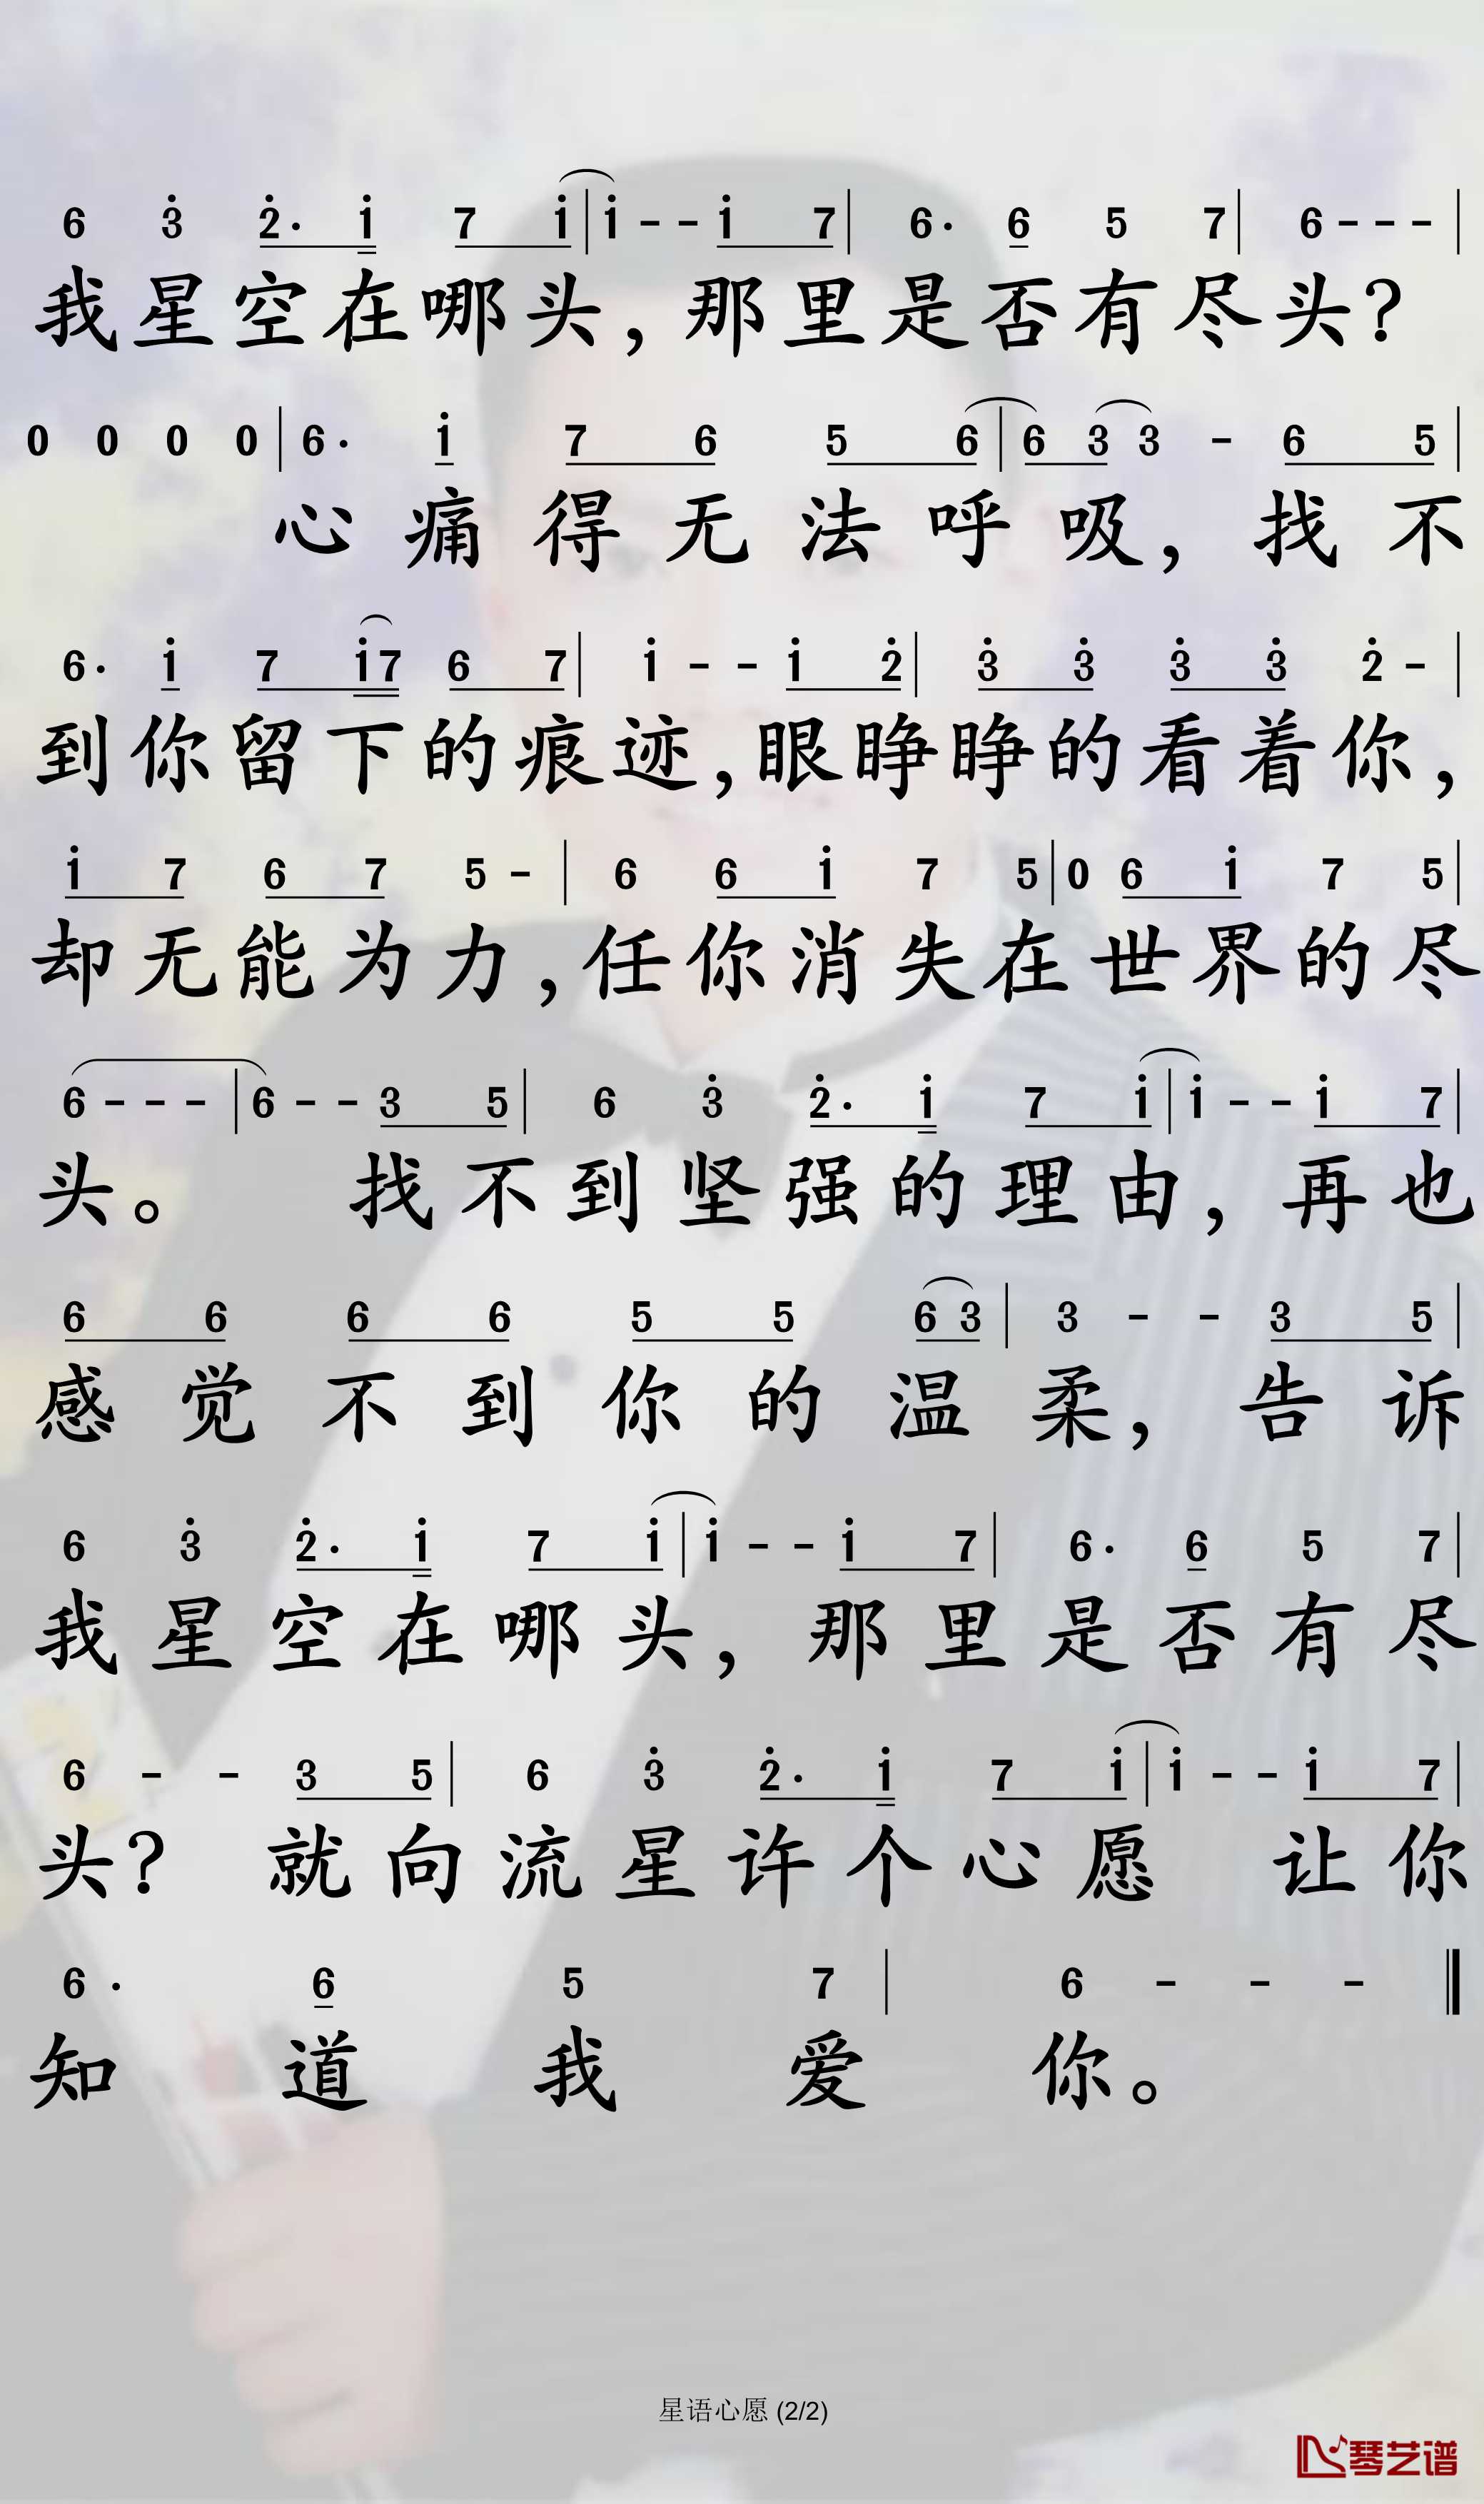 6 3̇ 2̇· 1̇ 7 1̇ | 1̇ - - 1̇ 7 | 6· 6 5 7 | 6 - - - |
我星空在哪头，那里是否有尽头？
0 0 0 0 | 6· 1̇ 7 6 5 6 | 6 3 3 - 6 5 |
心痛得无法呼吸，找不
6· 1̇ 7 1̇ 7 6 7 | 1̇ - - 1̇ 2̇ | 3̇ 3̇ 3̇ 3̇ 2̇ - |
到你留下的痕迹，眼睁睁的看着你，
1̇ 7 6 7 5 - | 6 6 1̇ 7 5 | 0 6 1̇ 7 5 |
却无能为力，任你消失在世界的尽
6 - - - | 6 - - 3 5 | 6 3̇ 2̇· 1̇ 7 1̇ | 1̇ - - 1̇ 7 |
头。 找不到坚强的理由，再也
6 6 6 6 5 5 6 3 | 3 - - 3 5 |
感觉不到你的温柔，告诉
6 3̇ 2̇· 1̇ 7 1̇ | 1̇ - - 1̇ 7 | 6· 6 5 7 |
我星空在哪头，那里是否有尽
6 - - 3 5 | 6 3̇ 2̇· 1̇ 7 1̇ | 1̇ - - 1̇ 7 |
头？ 就向流星许个心愿 让你
6· 6 5 7 | 6 - - - ‖
知道我爱你。
星语心愿 (2/2)
琴艺谱